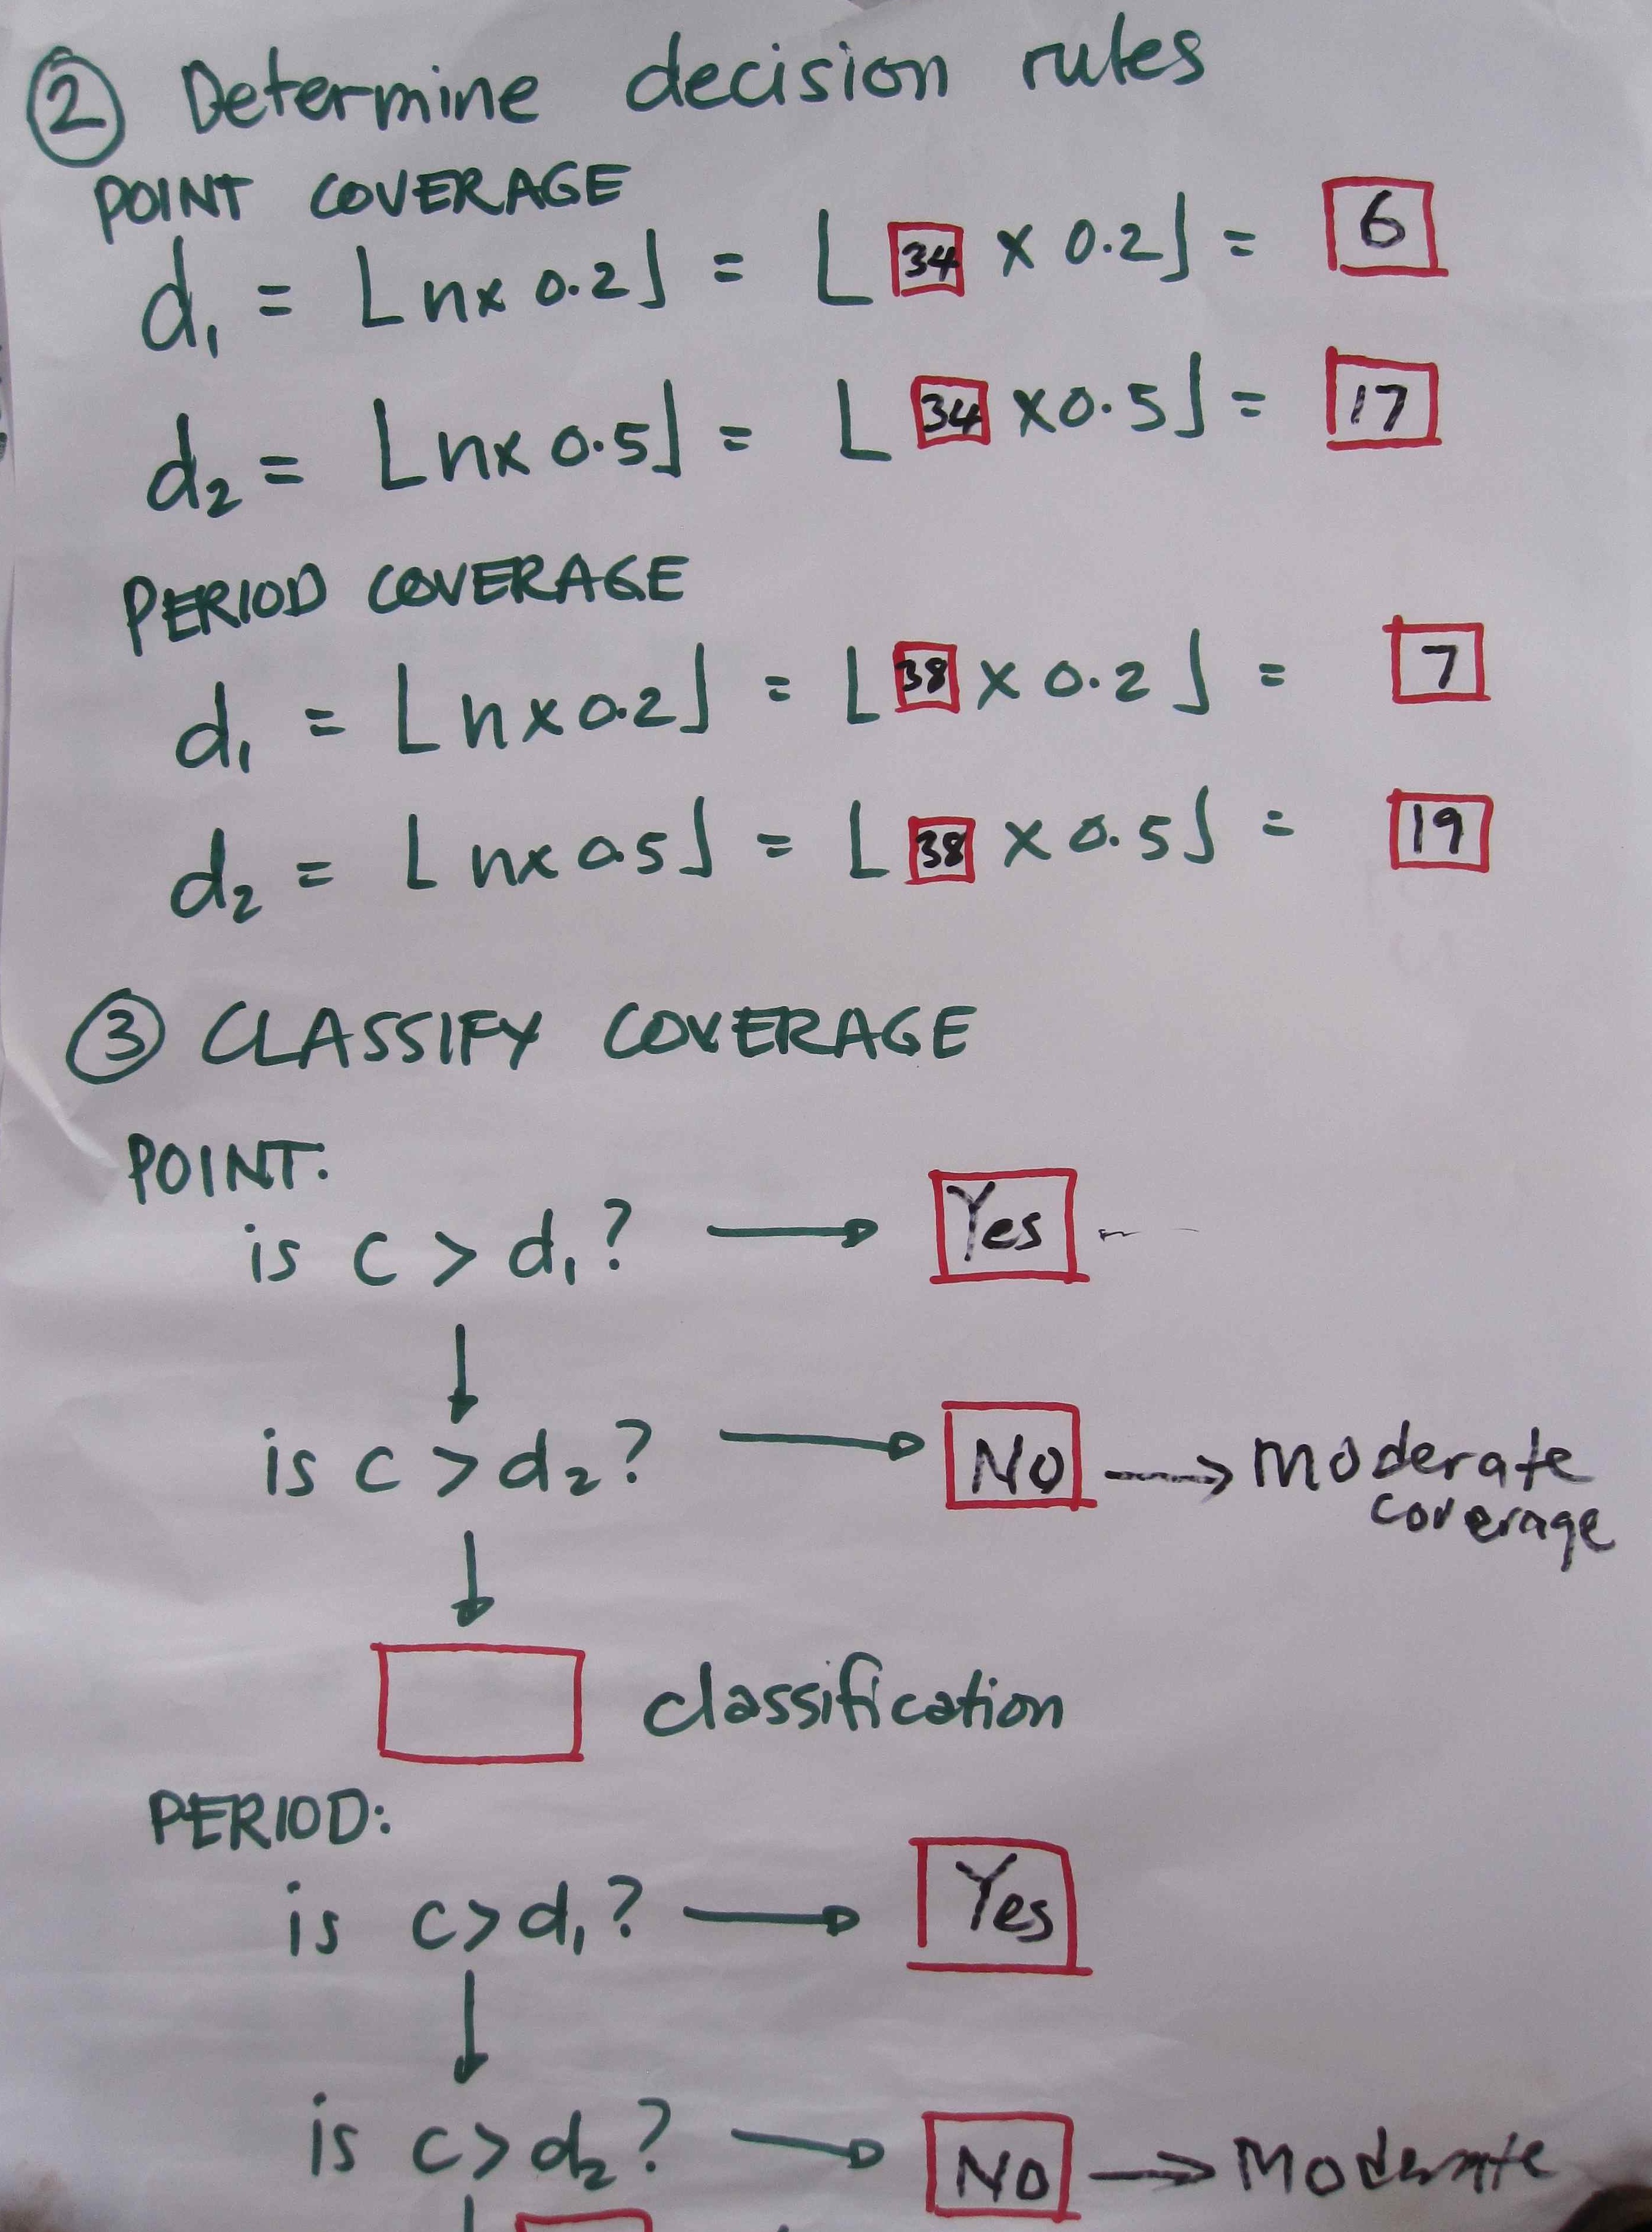 ② Determine decision rules
POINT COVERAGE
d₁ = ⌊n x 0.2⌋ = ⌊34 x 0.2⌋ = 6
d₂ = ⌊n x 0.5⌋ = ⌊34 x 0.5⌋ = 17
PERIOD COVERAGE
d₁ = ⌊n x 0.2⌋ = ⌊38 x 0.2⌋ = 7
d₂ = ⌊n x 0.5⌋ = ⌊38 x 0.5⌋ = 19
③ CLASSIFY COVERAGE
POINT:
is c > d₁? → Yes
↓
is c > d₂? → No → Moderate
coverage
↓
classification
PERIOD:
is c > d₁? → Yes
↓
is c > d₂? → No → Moderate